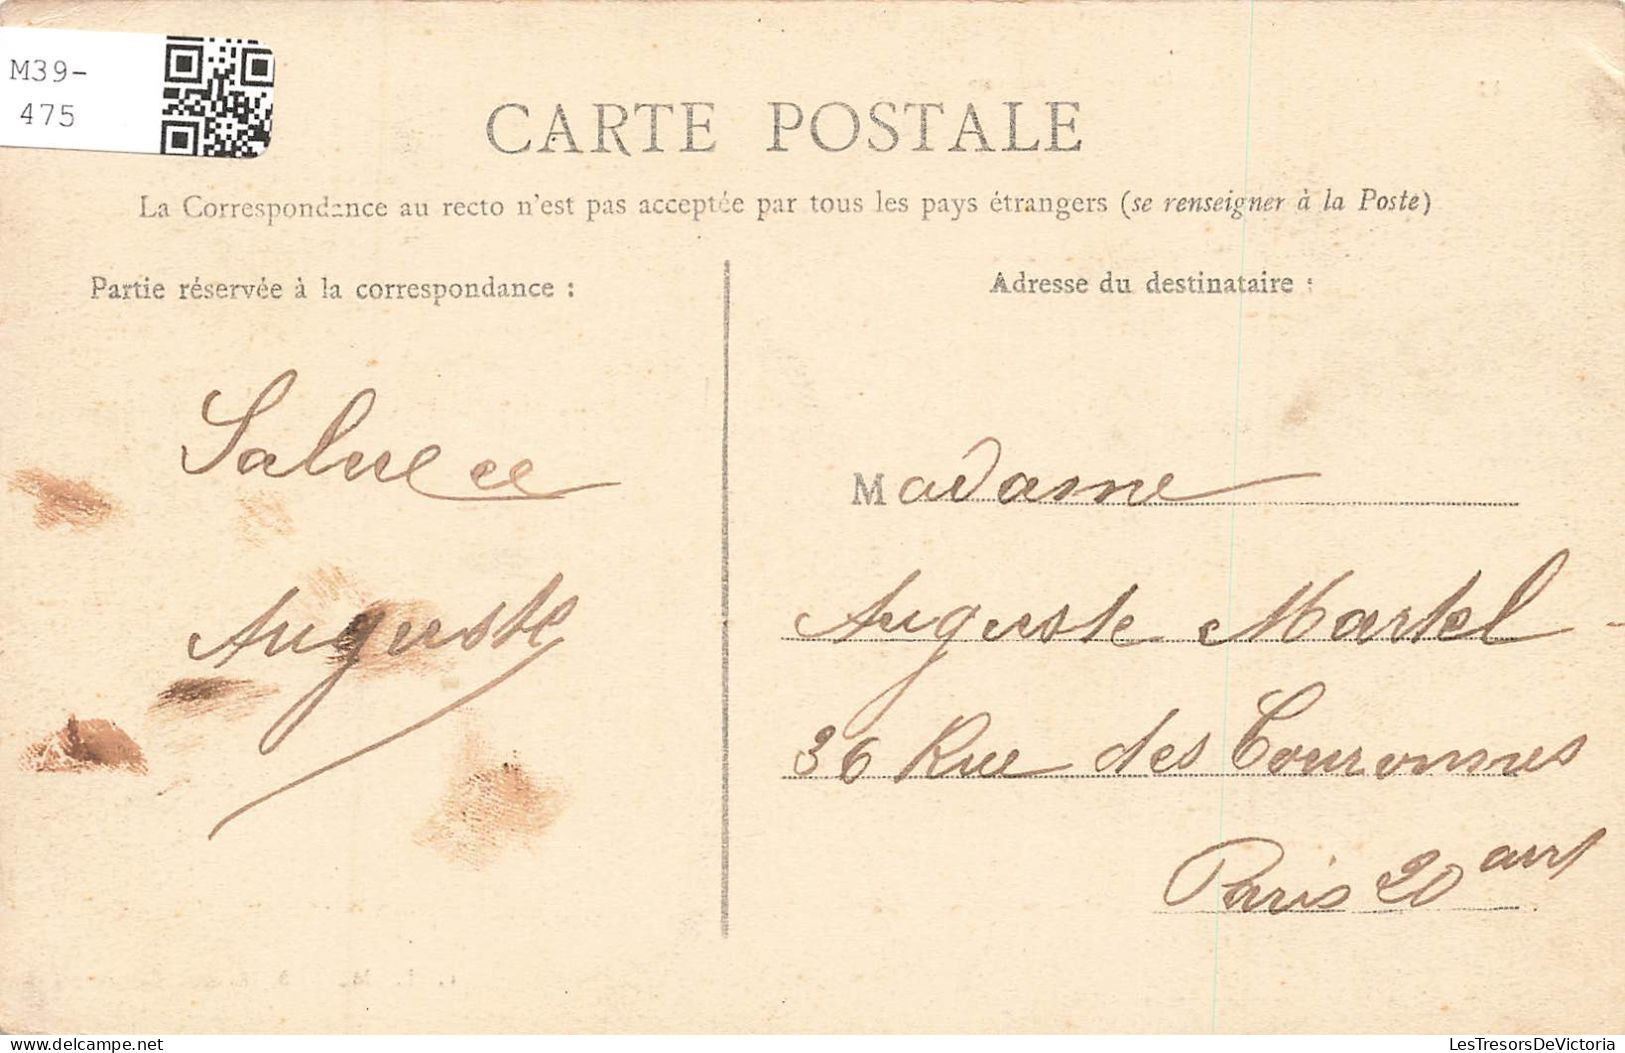 M39-
475
CARTE POSTALE
La Correspondance au recto n'est pas acceptée par tous les pays étrangers (se renseigner à la Poste)
Partie réservée à la correspondance :
Adresse du destinataire :
Auguste
Madame
Auguste Martel
36 Rue des Couronnes
Paris 20 arrt
delcampe.net
LesTresorsDeVictoria